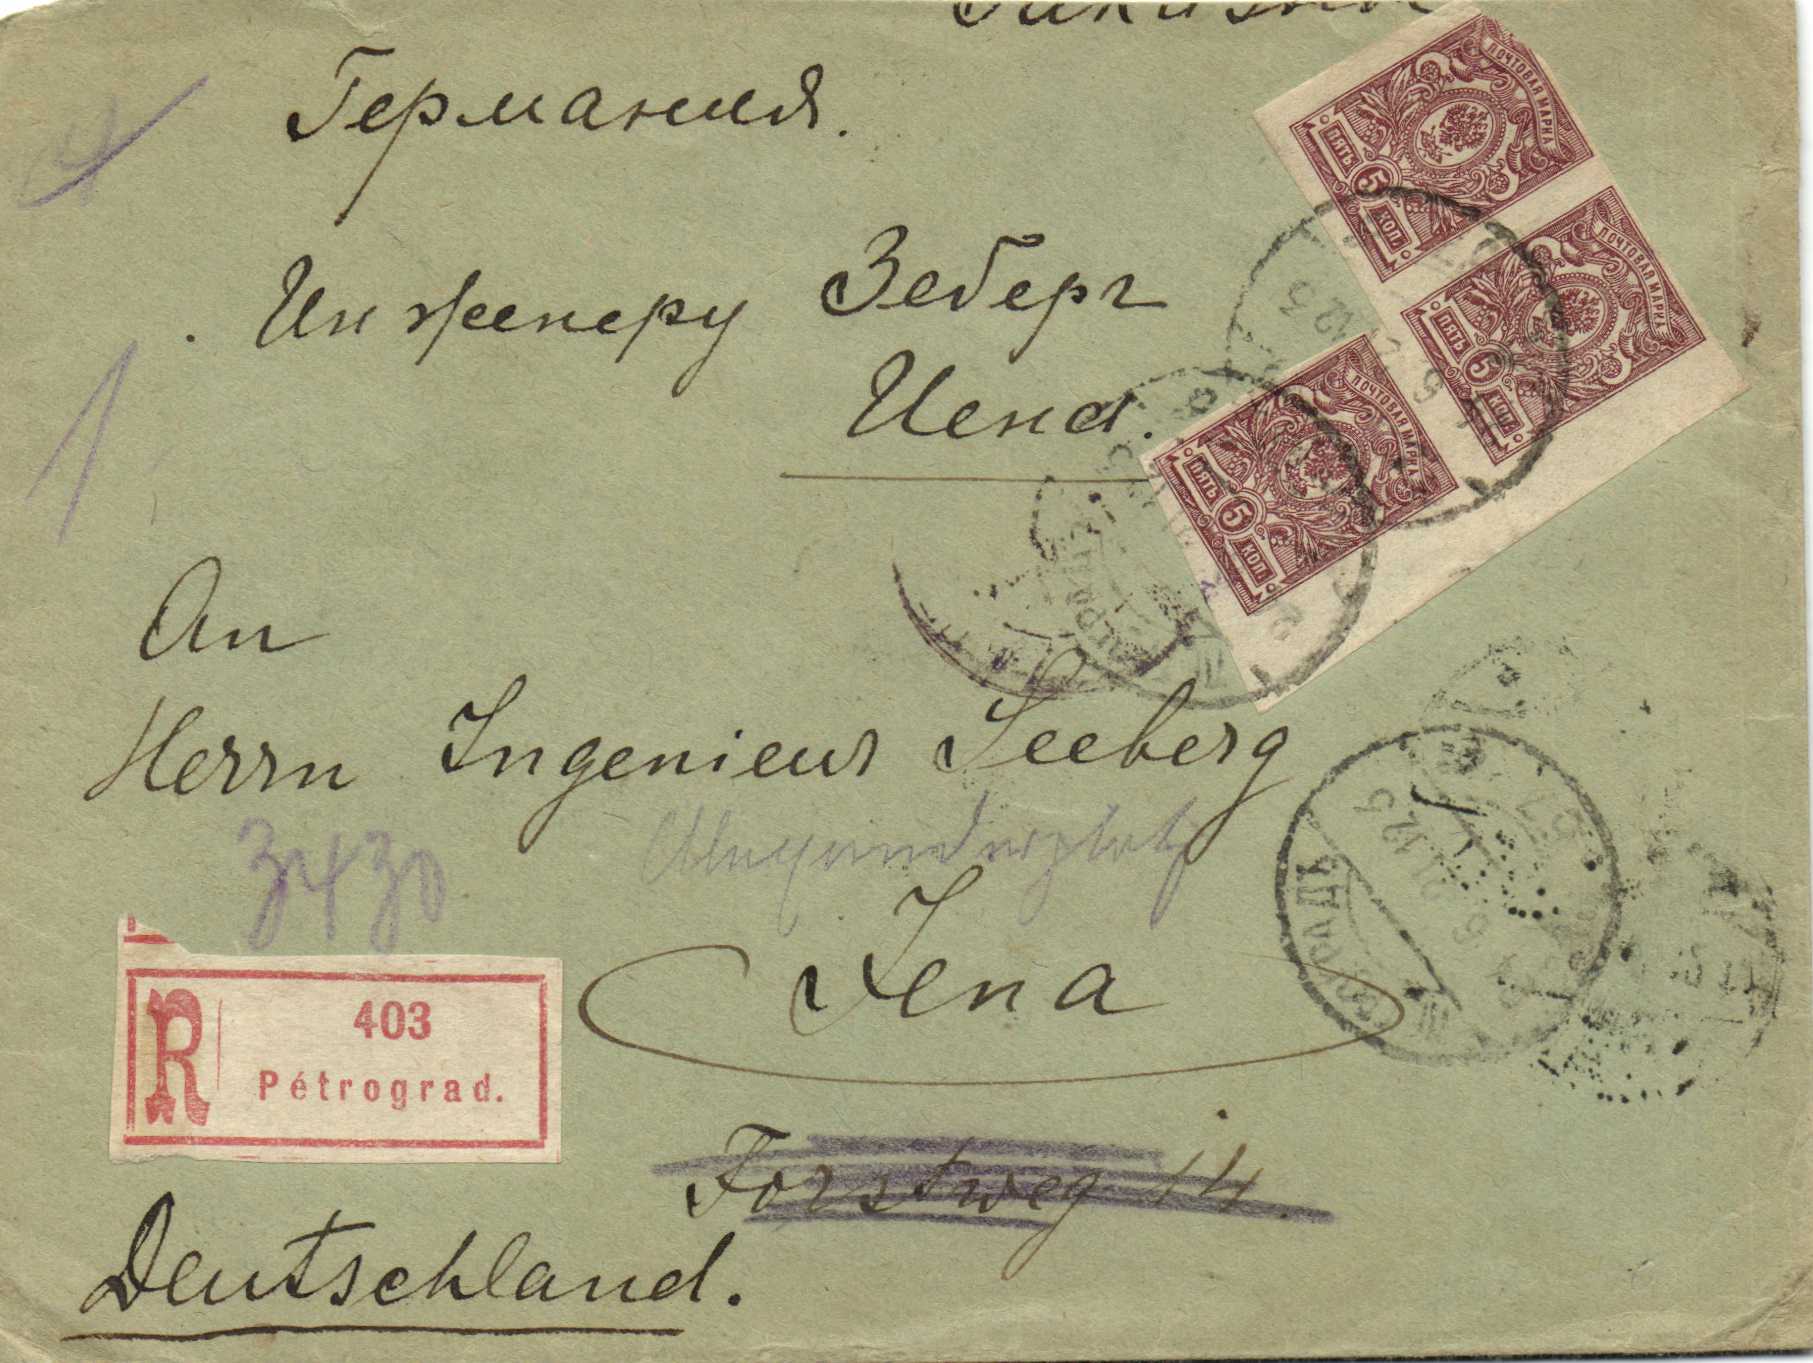 Германия.
Инженеру Зеберг
Иена.
ПОЧТОВАЯ МАРКА
ПЯТЬ 5 КОП.
ПОЧТОВАЯ МАРКА
ПЯТЬ 5 КОП.
ПОЧТОВАЯ МАРКА
ПЯТЬ 5 КОП.
An
Herrn Ingenieur Seeberg
3430
Alexanderplatz
Jena
R 403
Pétrograd.
Forstweg 14.
Deutschland.